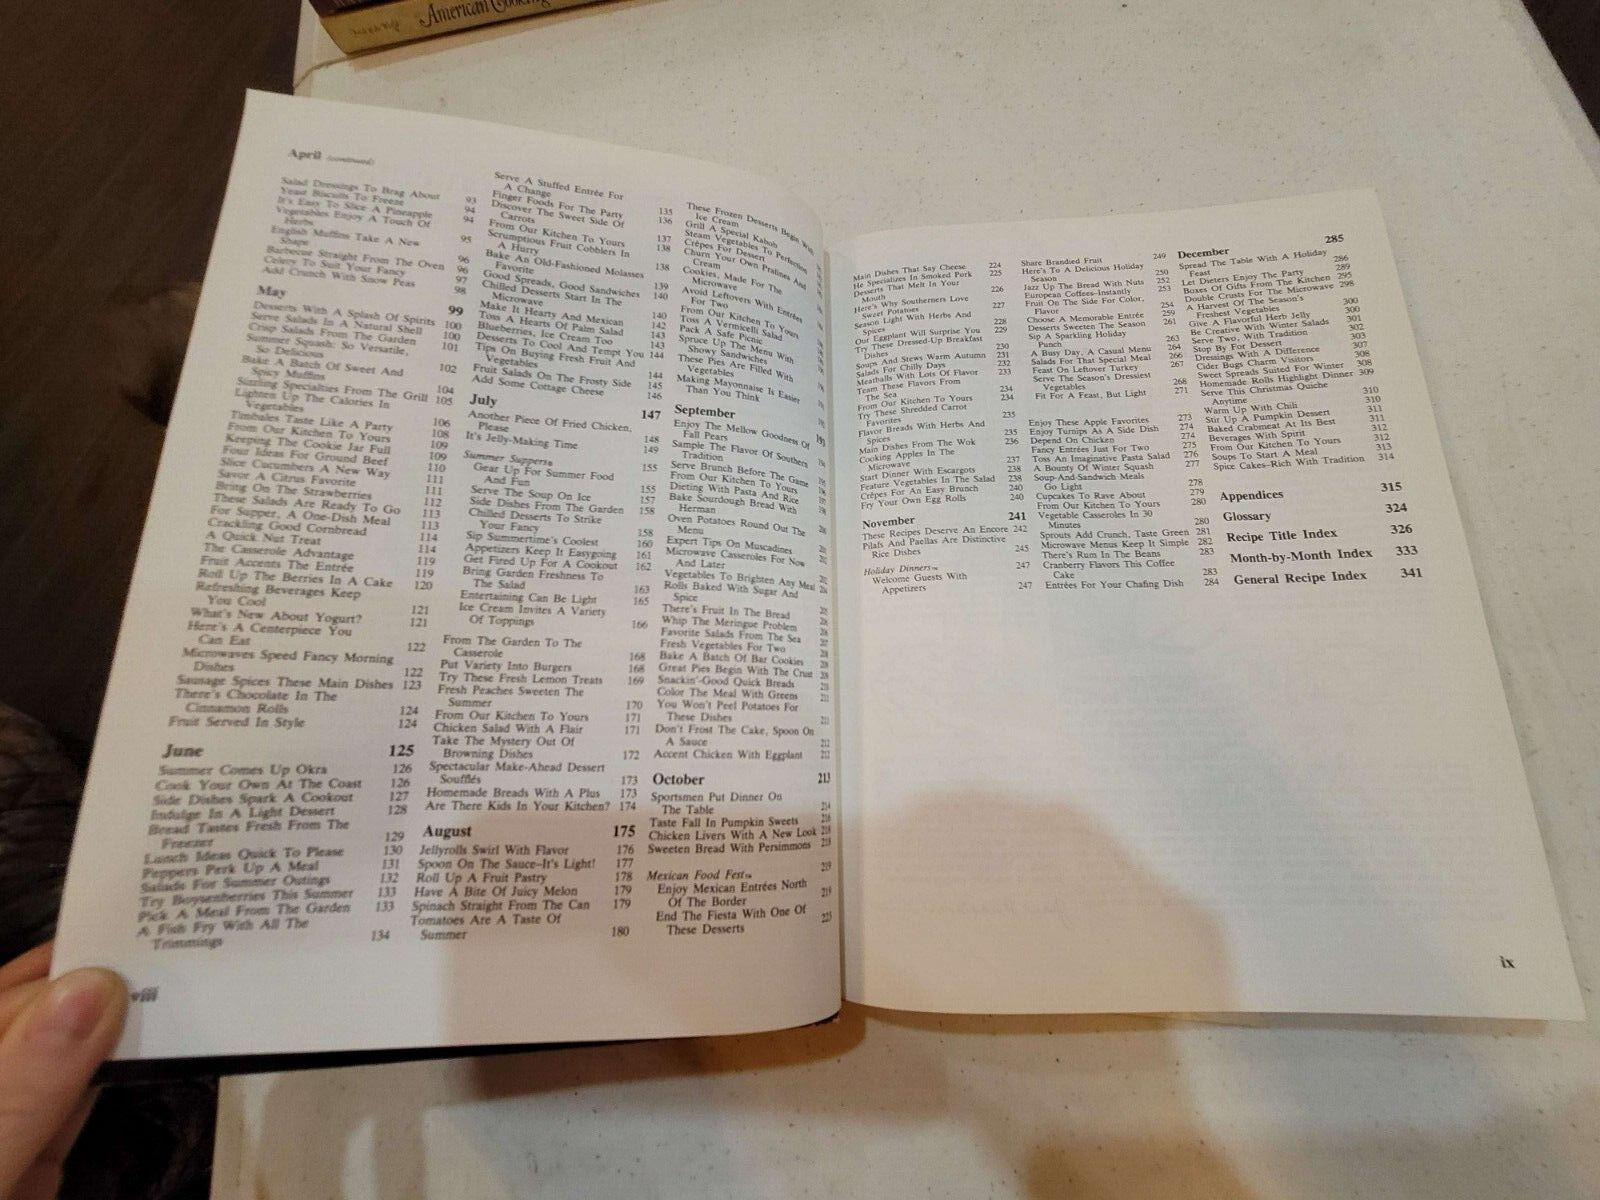 American Cooking
April (continued)
Salad Dressings To Brag About 93
Yeast Biscuits To Freeze 94
It's Easy To Slice A Pineapple 94
Vegetables Enjoy A Touch Of
Herbs 95
English Muffins Take A New
Shape 96
Barbecue Straight From The Oven 96
Celery To Suit Your Fancy 97
Add Crunch With Snow Peas 98
May 99
Desserts With A Splash Of Spirits 100
Serve Salads In A Natural Shell 100
Crisp Salads From The Garden 101
Summer Squash: So Versatile,
So Delicious 102
Bake A Batch Of Sweet And
Spicy Muffins 104
Sizzling Specialties From The Grill 105
Lighten Up The Calories In
Vegetables 106
Timbales Taste Like A Party 108
From Our Kitchen To Yours 109
Keeping The Cookie Jar Full 109
Four Ideas For Ground Beef 110
Slice Cucumbers A New Way 111
Savor A Citrus Favorite 111
Bring On The Strawberries 112
These Salads Are Ready To Go 113
For Supper, A One-Dish Meal 113
Crackling Good Cornbread 114
A Quick Nut Treat 114
The Casserole Advantage 119
Fruit Accents The Entrée 119
Roll Up The Berries In A Cake 120
Refreshing Beverages Keep
You Cool 121
What's New About Yogurt? 121
Here's A Centerpiece You
Can Eat 122
Microwaves Speed Fancy Morning
Dishes 122
Sausage Spices These Main Dishes 123
There's Chocolate In The
Cinnamon Rolls 124
Fruit Served In Style 124
June 125
Summer Comes Up Okra 126
Cook Your Own At The Coast 126
Side Dishes Spark A Cookout 127
Indulge In A Light Dessert 128
Bread Tastes Fresh From The
Freezer 129
Lunch Ideas Quick To Please 130
Peppers Perk Up A Meal 131
Salads For Summer Outings 132
Try Boysenberries This Summer 133
Pick A Meal From The Garden 133
A Fish Fry With All The
Trimmings 134
viii
Serve A Stuffed Entrée For
A Change 135
Finger Foods For The Party 136
Discover The Sweet Side Of
Carrots 137
From Our Kitchen To Yours 138
Scrumptious Fruit Cobblers In
A Hurry 138
Bake An Old-Fashioned Molasses
Favorite 139
Good Spreads, Good Sandwiches 140
Chilled Desserts Start In The
Microwave 140
Make It Hearty And Mexican 142
Toss A Hearts Of Palm Salad 143
Blueberries, Ice Cream Too 143
Desserts To Cool And Tempt You 144
Tips On Buying Fresh Fruit And
Vegetables 144
Fruit Salads On The Frosty Side 145
Add Some Cottage Cheese 146
July 147
Another Piece Of Fried Chicken,
Please 148
It's Jelly-Making Time 149
Summer Suppers®
Gear Up For Summer Food 155
And Fun
Serve The Soup On Ice 155
Side Dishes From The Garden 157
Chilled Desserts To Strike 158
Your Fancy 158
Sip Summertime's Coolest 160
Appetizers Keep It Easygoing 161
Get Fired Up For A Cookout 162
Bring Garden Freshness To
The Salad 163
Entertaining Can Be Light 165
Ice Cream Invites A Variety
Of Toppings 166
From The Garden To The
Casserole 168
Put Variety Into Burgers 168
Try These Fresh Lemon Treats 169
Fresh Peaches Sweeten The
Summer 170
From Our Kitchen To Yours 171
Chicken Salad With A Flair 171
Take The Mystery Out Of
Browning Dishes 172
Spectacular Make-Ahead Dessert
Soufflés 173
Homemade Breads With A Plus 173
Are There Kids In Your Kitchen? 174
August 175
Jellyrolls Swirl With Flavor 176
Spoon On The Sauce-It's Light! 177
Roll Up A Fruit Pastry 178
Have A Bite Of Juicy Melon 179
Spinach Straight From The Can 179
Tomatoes Are A Taste Of
Summer 180
These Frozen Desserts Begin With
Ice Cream
Grill A Special Kabob
Steam Vegetables To Perfection
Crêpes For Dessert
Churn Your Own Pralines And
Cream
Cookies, Made For The
Microwave
Avoid Leftovers With Entrées
For Two
From Our Kitchen To Yours
Toss A Vermicelli Salad
Pack A Safe Picnic
Spruce Up The Menu With
Showy Sandwiches
These Pies Are Filled With
Vegetables
Making Mayonnaise Is Easier
Than You Think
September 193
Enjoy The Mellow Goodness Of
Fall Pears
Sample The Flavor Of Southern
Tradition
Serve Brunch Before The Game
From Our Kitchen To Yours
Dieting With Pasta And Rice
Bake Sourdough Bread With
Herman
Oven Potatoes Round Out The
Menu
Expert Tips On Muscadines
Microwave Casseroles For Now
And Later
Vegetables To Brighten Any Meal
Rolls Baked With Sugar And
Spice
There's Fruit In The Bread
Whip The Meringue Problem
Favorite Salads From The Sea
Fresh Vegetables For Two
Bake A Batch Of Bar Cookies
Great Pies Begin With The Crust
Snackin'-Good Quick Breads
Color The Meal With Greens
You Won't Peel Potatoes For
These Dishes 211
Don't Frost The Cake, Spoon On
A Sauce 212
Accent Chicken With Eggplant 212
October 213
Sportsmen Put Dinner On
The Table 214
Taste Fall In Pumpkin Sweets 216
Chicken Livers With A New Look 218
Sweeten Bread With Persimmons 218
Mexican Food Fest™ 219
Enjoy Mexican Entrées North
Of The Border 219
End The Fiesta With One Of
These Desserts 223
Main Dishes That Say Cheese 224
He Specializes In Smoked Pork 225
Desserts That Melt In Your
Mouth 226
Here's Why Southerners Love
Sweet Potatoes 227
Season Light With Herbs And
Spices 228
Our Eggplant Will Surprise You 229
Try These Dressed-Up Breakfast
Dishes 230
Soups And Stews Warm Autumn 231
Salads For Chilly Days 232
Meatballs With Lots Of Flavor 233
Team These Flavors From
The Sea 234
From Our Kitchen To Yours 234
Try These Shredded Carrot
Favorites 235
Flavor Breads With Herbs And
Spices 235
Main Dishes From The Wok 236
Cooking Apples In The
Microwave 237
Start Dinner With Escargots 238
Feature Vegetables In The Salad 238
Crêpes For An Easy Brunch 240
Fry Your Own Egg Rolls 240
November 241
These Recipes Deserve An Encore 242
Pilafs And Paellas Are Distinctive
Rice Dishes 245
Holiday Dinners™ 247
Welcome Guests With
Appetizers 247
Share Brandied Fruit 249
Here's To A Delicious Holiday
Season 250
Jazz Up The Bread With Nuts 252
European Coffees-Instantly 253
Fruit On The Side For Color,
Flavor 254
Choose A Memorable Entrée 259
Desserts Sweeten The Season 261
Sip A Sparkling Holiday
Punch 263
A Busy Day, A Casual Menu 264
Salads For That Special Meal 266
Feast On Leftover Turkey 267
Serve The Season's Dressiest
Vegetables 268
Fit For A Feast, But Light 271
Enjoy These Apple Favorites 273
Enjoy Turnips As A Side Dish 274
Depend On Chicken 274
Fancy Entrées Just For Two 275
Toss An Imaginative Pasta Salad 276
A Bounty Of Winter Squash 277
Soup-And-Sandwich Meals
Go Light 278
Cupcakes To Rave About 279
From Our Kitchen To Yours 280
Vegetable Casseroles In 30
Minutes 280
Sprouts Add Crunch, Taste Green 281
Microwave Menus Keep It Simple 282
There's Rum In The Beans 283
Cranberry Flavors This Coffee
Cake 283
Entrées For Your Chafing Dish 284
December 285
Spread The Table With A Holiday
Feast 286
Let Dieters Enjoy The Party 289
Boxes Of Gifts From The Kitchen 295
Double Crusts For The Microwave 298
A Harvest Of The Season's
Freshest Vegetables 300
Give A Flavorful Herb Jelly 300
Be Creative With Winter Salads 301
Serve Two, With Tradition 302
Stop By For Dessert 303
Dressings With A Difference 307
Cider Bugs Charm Visitors 308
Sweet Spreads Suited For Winter 308
Homemade Rolls Highlight Dinner 309
Serve This Christmas Quiche
Anytime 310
Warm Up With Chili 310
Stir Up A Pumpkin Dessert 311
Baked Crabmeat At Its Best 311
Beverages With Spirit 312
From Our Kitchen To Yours 312
Soups To Start A Meal 313
Spice Cakes-Rich With Tradition 314
Appendices 315
Glossary 324
Recipe Title Index 326
Month-by-Month Index 333
General Recipe Index 341
ix